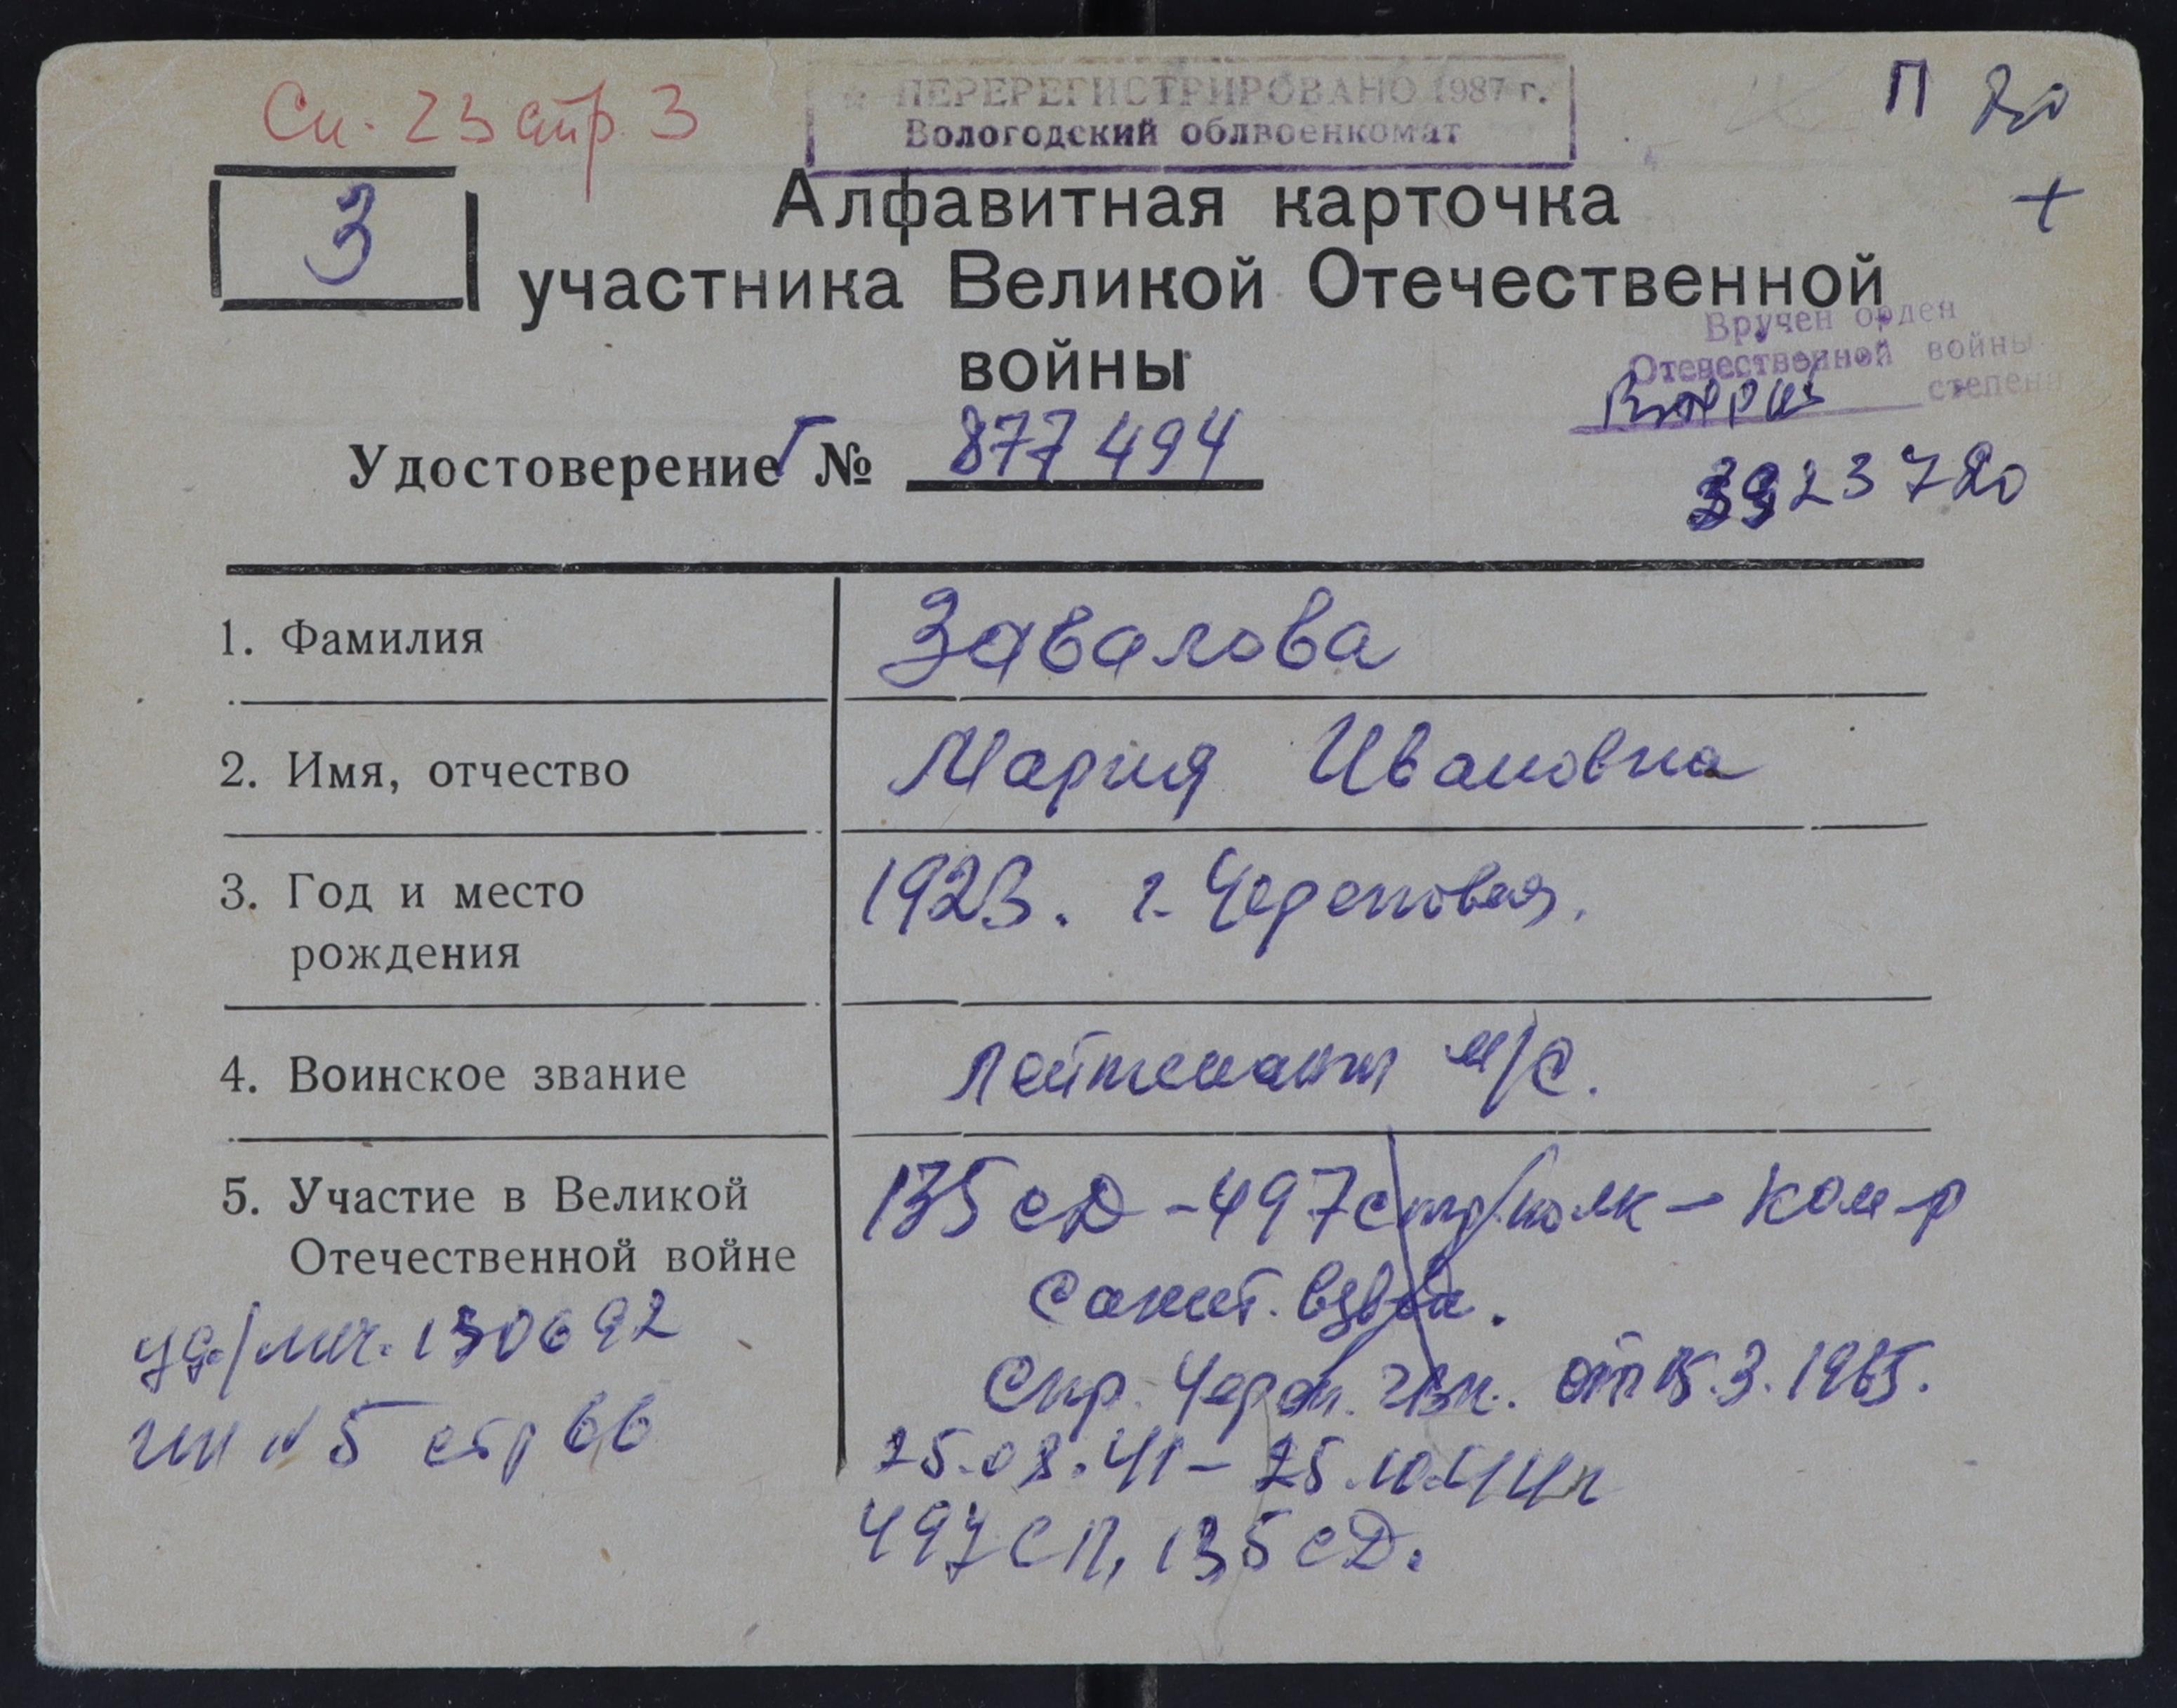 Сп. 23 стр. 3
ПЕРЕРЕГИСТРИРОВАНО 1987 г.
Вологодский облвоенкомат
П
+
З
Алфавитная карточка
участника Великой Отечественной
войны
Вручен орден
Отечественной войны
степени
Удостоверение Г № 877 494
3923720
1. Фамилия Завалова
2. Имя, отчество Мария Ивановна
3. Год и место рождения 1923. г. Череповец.
4. Воинское звание лейтенант м/с.
5. Участие в Великой
Отечественной войне
135 сД - 497 стр/полк - ком-р
санит. взвода.
Спр. Череп. гвк. от 15.3.1965.
25.08.41 - 25.10.44 г
497 СП, 135 сД.
уд/лич. 130692
№ 5 стр 66